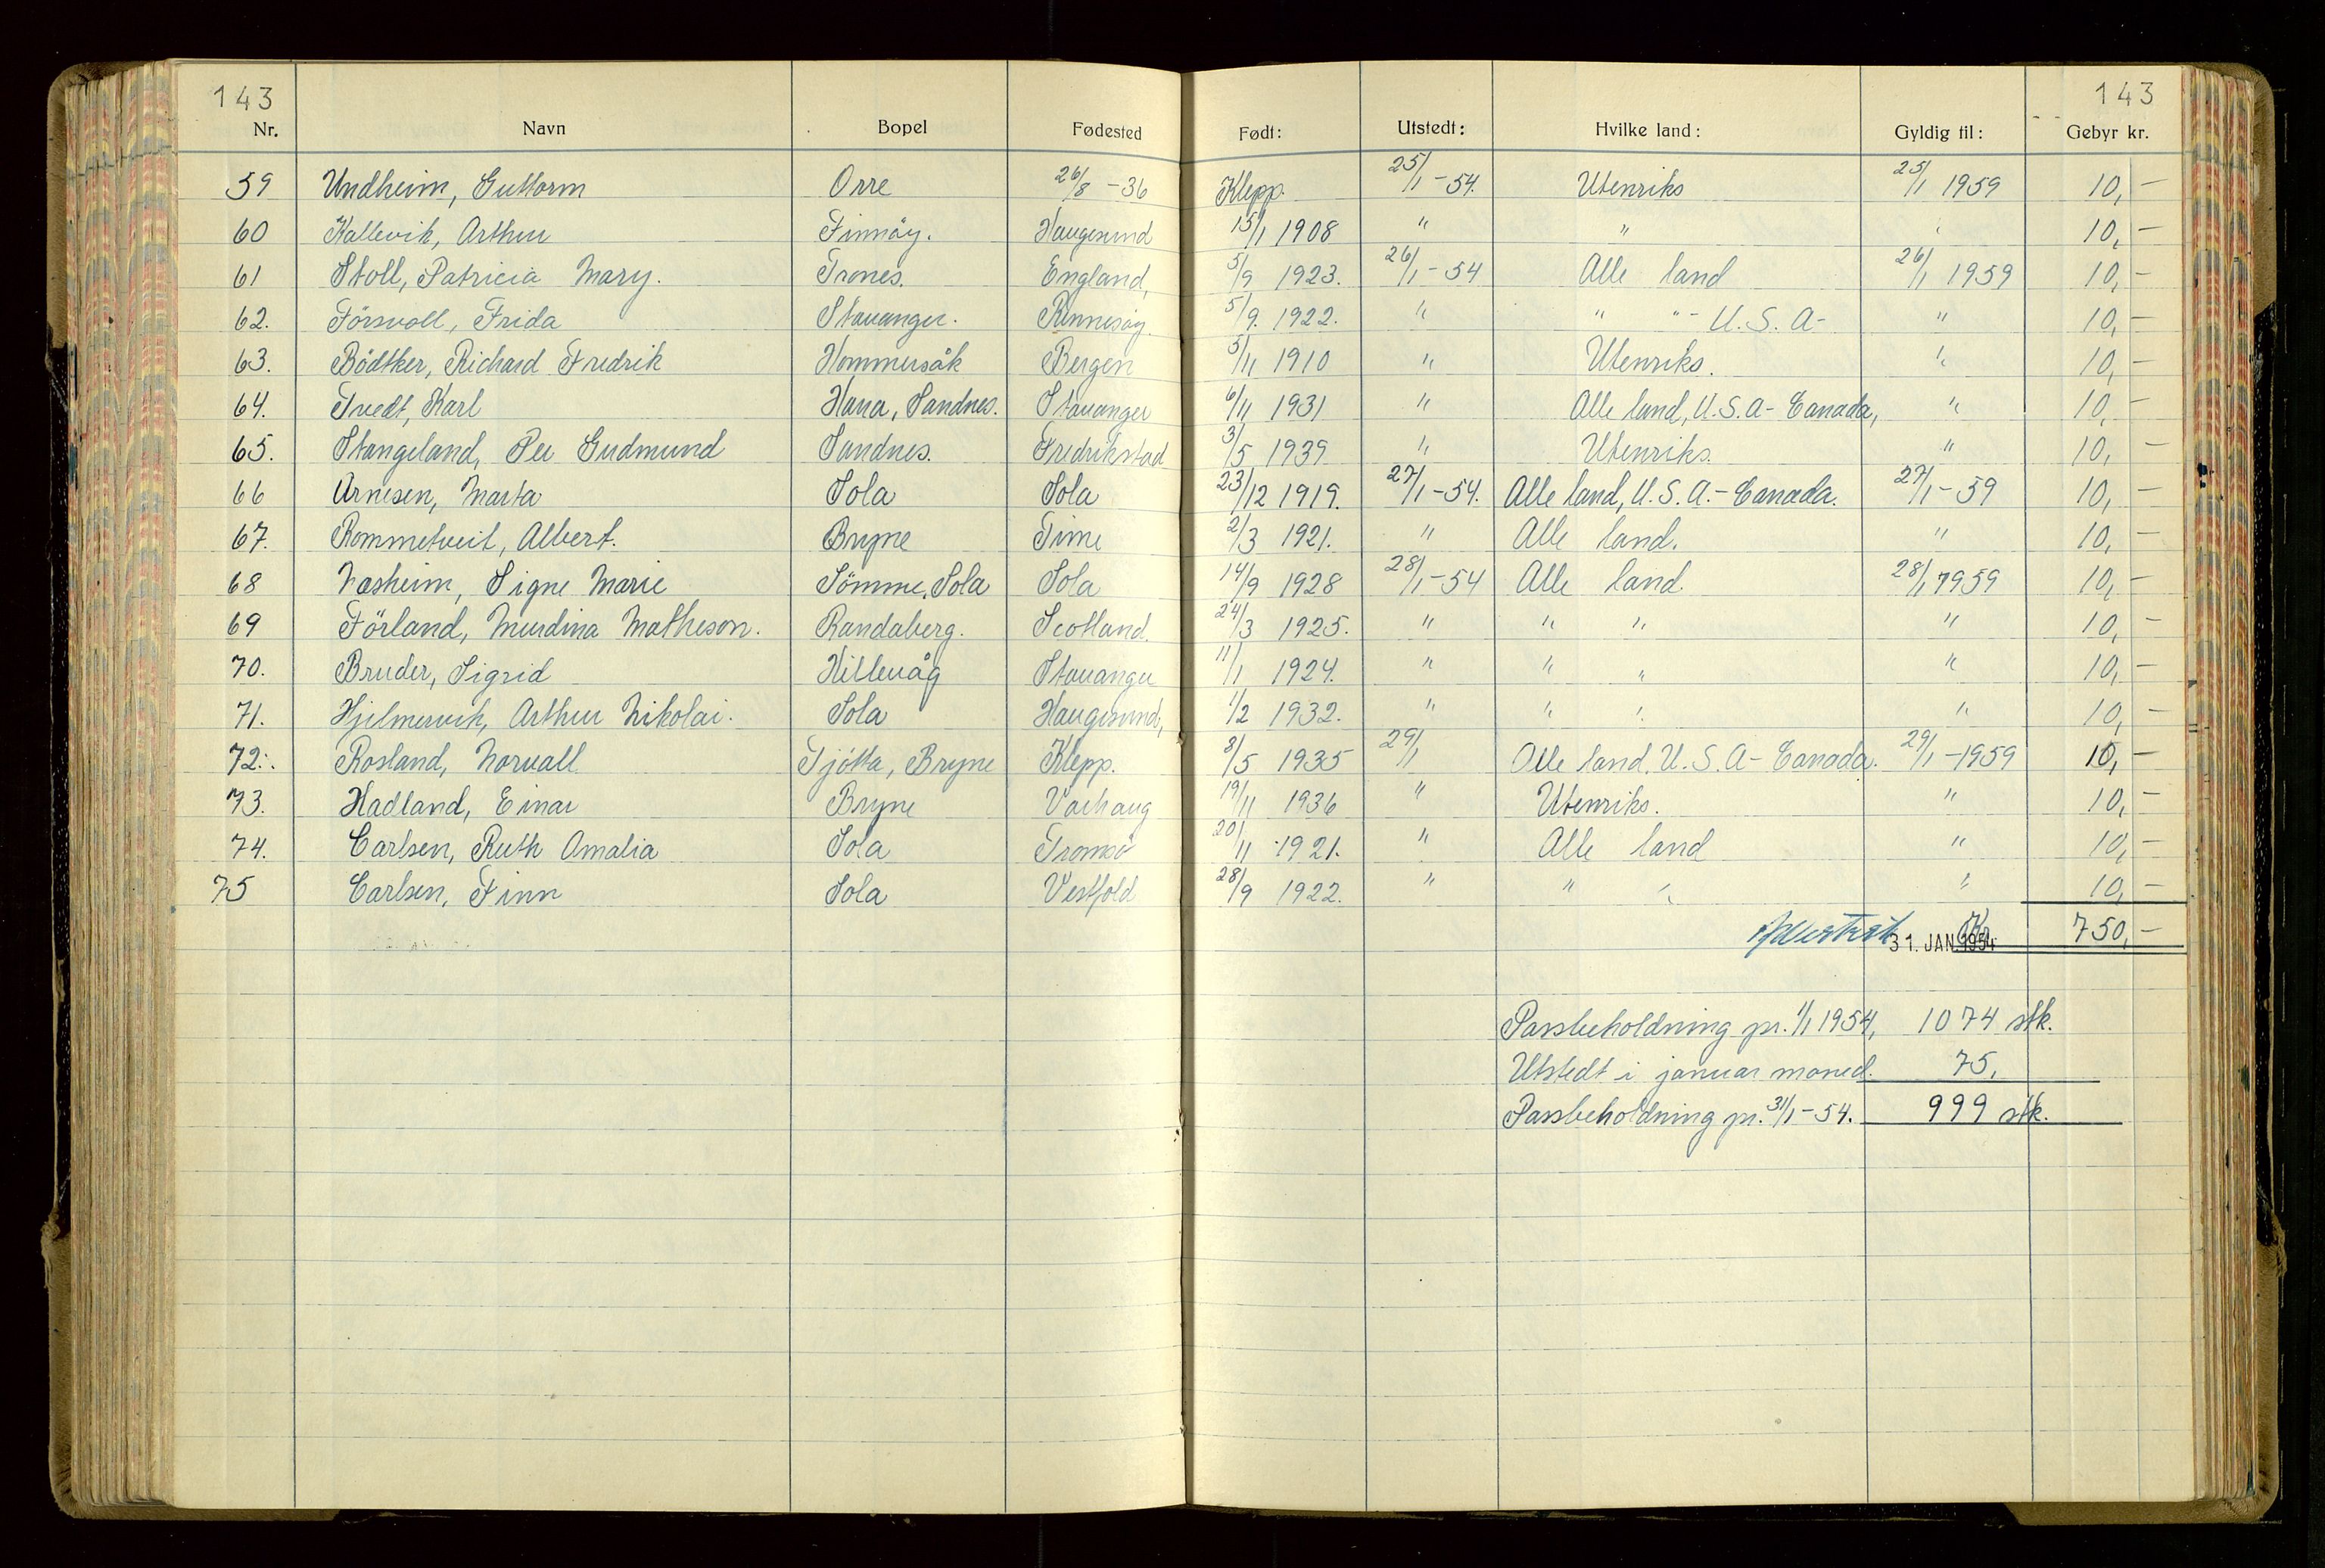 143 143
Nr. Navn Bopel Fødested Født: Utstedt: Hvilke land: Gyldig til: Gebyr kr.
59 Undheim, Guttorm Orre 26/8 -36 Klepp. 25/1 - 54. Utenriks 25/1 1959 10,-
60 Kallevik, Arthur Finnöy. Haugesund 15/1 1908 " " " 10,-
61 Stoll, Patricia Mary. Trones. England, 5/9 1923. 26/1 - 54 Alle land 26/1 1959 10,-
62. Försvoll, Frida Stavanger. Rennesöy. 5/9. 1922. " " " - U.S.A- " 10,-
63. Bödtker, Richard Fredrik Hommersåk Bergen 5/11 1910 " Utenriks. " 10,-
64. Tvedt, Karl Hana, Sandnes. Stavanger 6/11 1931 " Alle land, U.S.A- Canada, " 10,-
65. Stangeland, Per Gudmund Sandnes. Fredrikstad 3/5 1939 " Utenriks. " 10,-
66 Arnesen, Marta Sola Sola 23/12 1919. 27/1 - 54. Alle land, U.S.A.- Canada. 27/1 - 59 10,-
67. Rommetveit, Albert. Bryne Time 2/3 1921. " Alle land. " 10,-
68 Næsheim, Signe Marie Sömme, Sola Sola 14/9 1928 28/1 - 54 Alle land. 28/1 1959 10,-
69 Förland, Murdina Matheson. Randaberg. Scotland. 24/3 1925. " " " " 10,-
70. Bruder, Sigrid Hillevåg Stavanger 11/1 1924. " " " " 10,-
71. Hjelmervik, Arthur Nikolai. Sola Haugesund, 1/2 1932. " " " " 10,-
72. Rosland, Norvall Tjötta, Bryne Klepp. 8/5 1935 29/1 Alle land, U.S.A- Canada. 29/1 -1959 10,-
73. Hadland, Einar Bryne Varhaug 19/11 1936 " Utenriks. " 10,-
74. Carlsen, Ruth Amalia Sola Tromsö 20/11 1921. " Alle land " 10,-
75 Carlsen, Finn Sola Vestfold 28/9 1922. " " " " 10,-
31. JAN. 1954 Kr. 750,-
Passbeholdning pr. 1/1 1954, 1074 stk.
Utstedt i januar måned. 75,
Passbeholdning pr. 31/1 - 54. 999 stk.